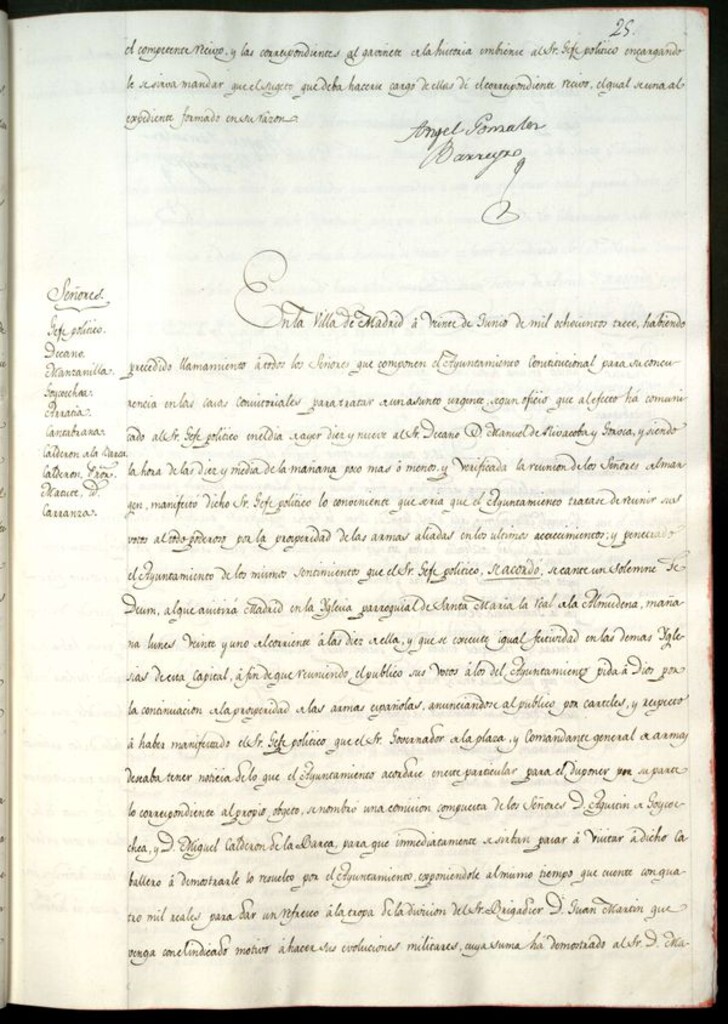 25.
el competente recivo, y las correspondientes al gavinete de la historia embiense al Sr. Gefe politico encargando
le se sirva mandar que el sugeto que deba hacerse cargo de ellas dé el correspondiente recivo, el qual se una al
expediente formado en su razon.
Angel Gonzalez
Barreyro
Señores.
Gefe politico.
Decano.
Manzanilla.
Goycochea.
Arratia.
Cantabrana.
Calderon de la Barca.
Calderon, Dn.
Matute, D.
Carranza.
En la Villa de Madrid á veinte de Junio de mil ochocientos trece, habiendo
precedido llamamiento á todos los Señores que componen el Ayuntamiento Constitucional para su concu-
rrencia en las casas consistoriales para tratar de un asunto urgente, segun oficio que al efecto há comuni-
cado el Sr. Gefe politico en el dia de ayer diez y nueve al Sr. Decano D. Manuel de Rivacoba y Gorbea, y siendo
la hora de las diez y media de la mañana poco mas ó menos, y verificada la reunion de los Señores al mar-
gen, manifestó dicho Sr. Gefe politico lo conveniente que seria que el Ayuntamiento tratase de reunir sus
votos al todo poderoso por la prosperidad de las armas aliadas en los ultimos acaecimientos; y penetrado
el Ayuntamiento de los mismos sentimientos que el Sr. Gefe politico, se acordó: se cante un solemne Te
Deum, al que asistirá Madrid en la Yglesia parroquial de Santa Maria la real de la Almudena, maña-
na lunes veinte y uno del corriente á las diez de ella, y que se execute igual festividad en las demas Ygle-
sias de esta Capital, á fin de que reuniendo el publico sus votos á los del Ayuntamiento pida á Dios por
la continuacion de la prosperidad de las armas españolas, anunciandose al publico por carteles, y respecto
á haber manifestado el Sr. Gefe politico que el Sr. Governador de la plaza, y Comandante general de armas
deseaba tener noticia de lo que el Ayuntamiento acordase en este particular para el disponer por su parte
lo correspondiente al propio objeto, se nombró una comision compuesta de los Señores D. Agustin de Goyco-
chea, y D. Miguel Calderon de la Barca, para que inmediatamente se sirban pasar á visitar á dicho Ca-
ballero á demostrarle lo resuelto por el Ayuntamiento, exponiendole al mismo tiempo que cuente con qua-
tro mil reales para dar un refresco á la tropa de la division del Sr. Brigadier D. Juan Martin que
venga con el indicado motivo á hacer sus evoluciones militares, cuya suma há demostrado el Sr. D. Ma-